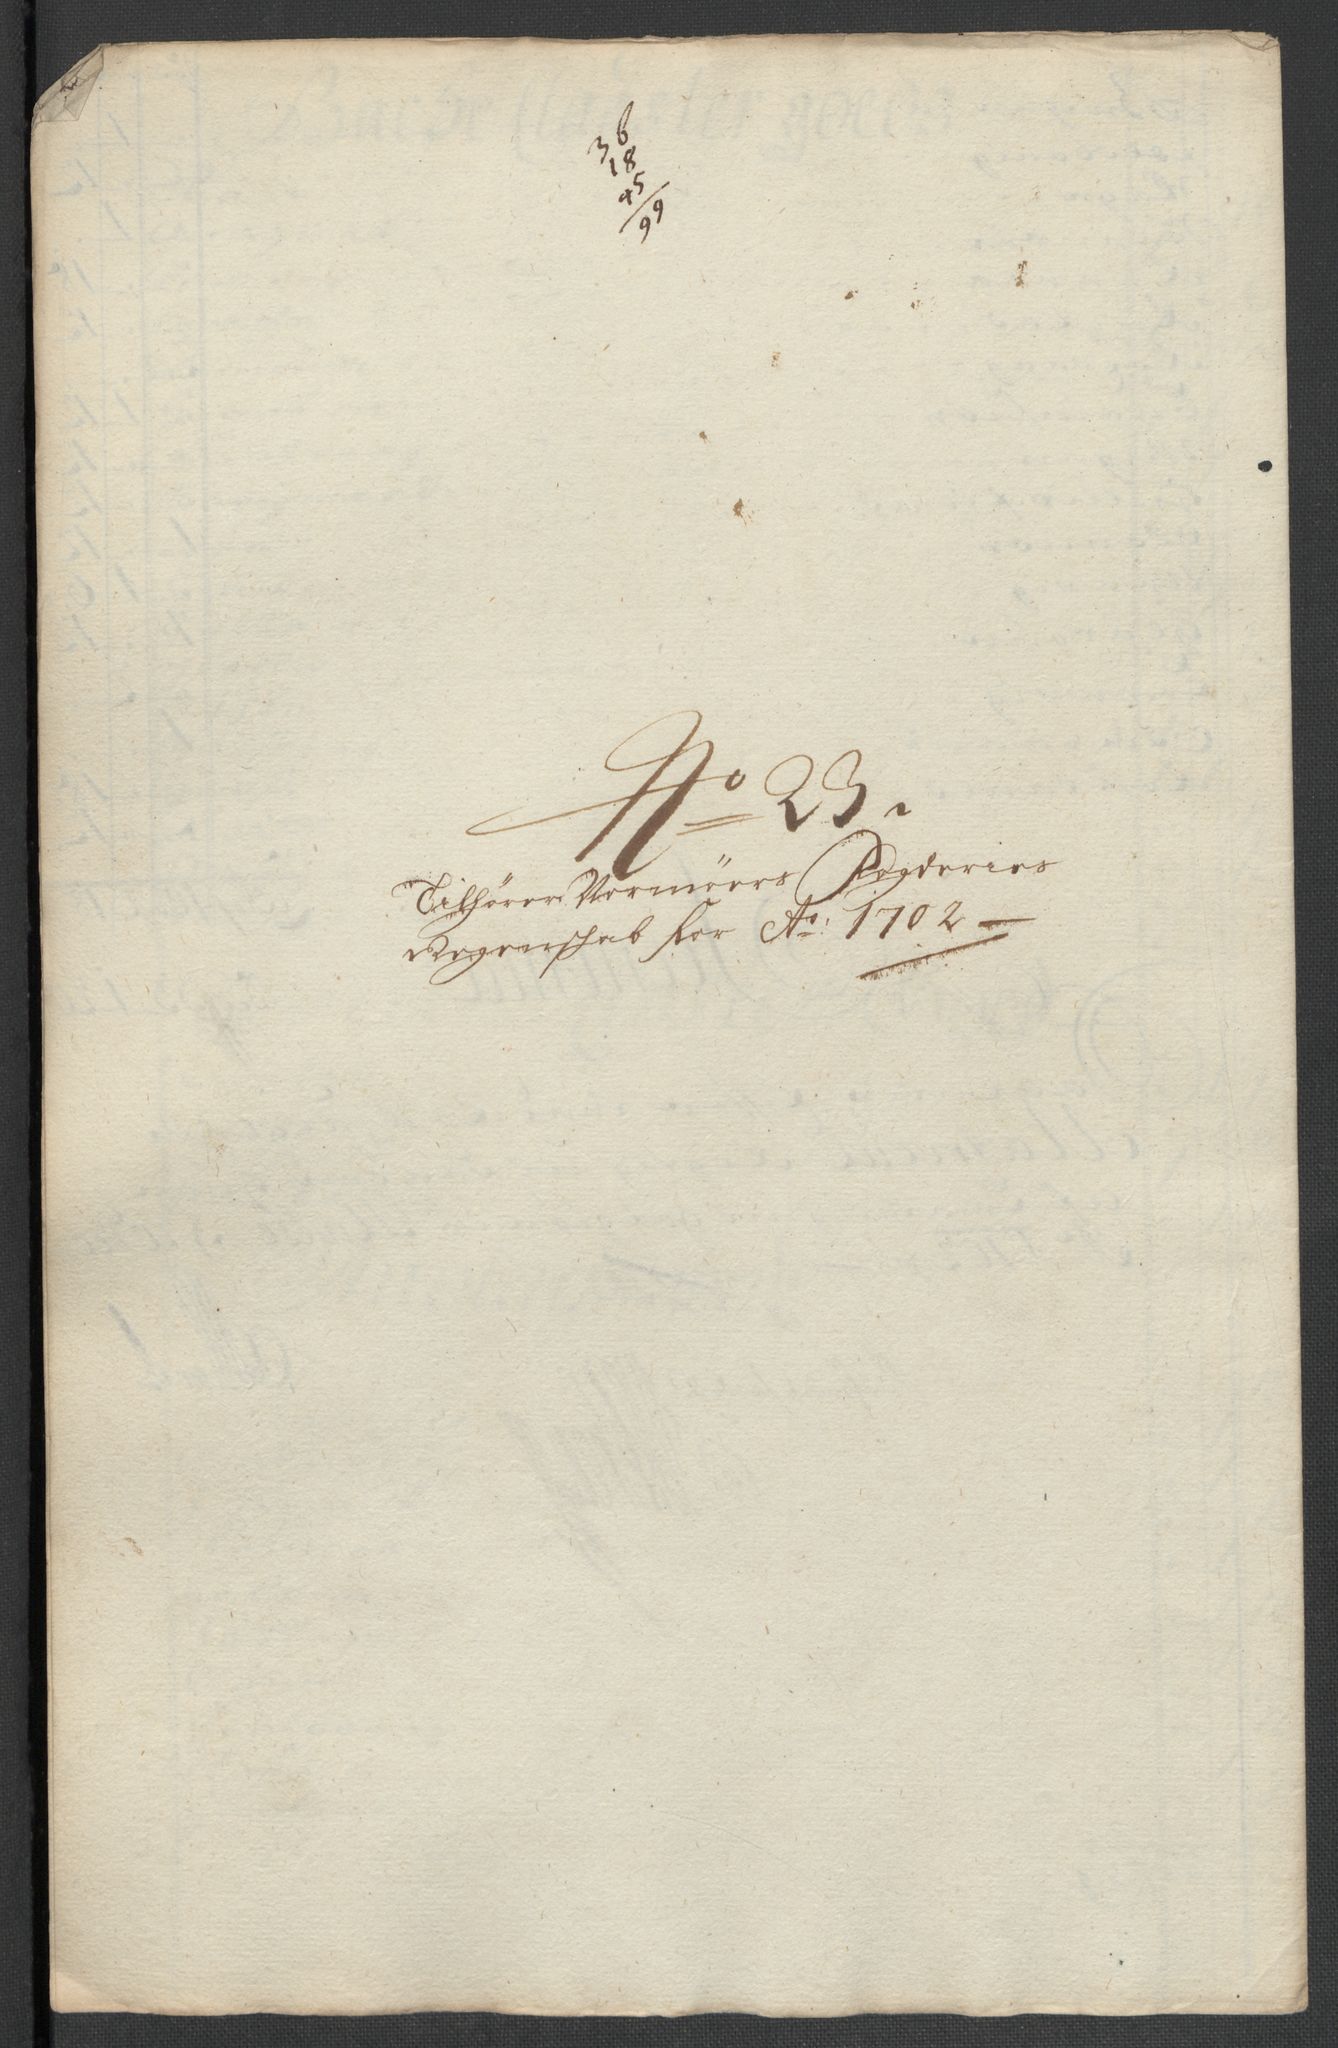 36
18
45
99
No 23.
Tilhører Normørs Fogderies
Regenschab for Ao: 1702